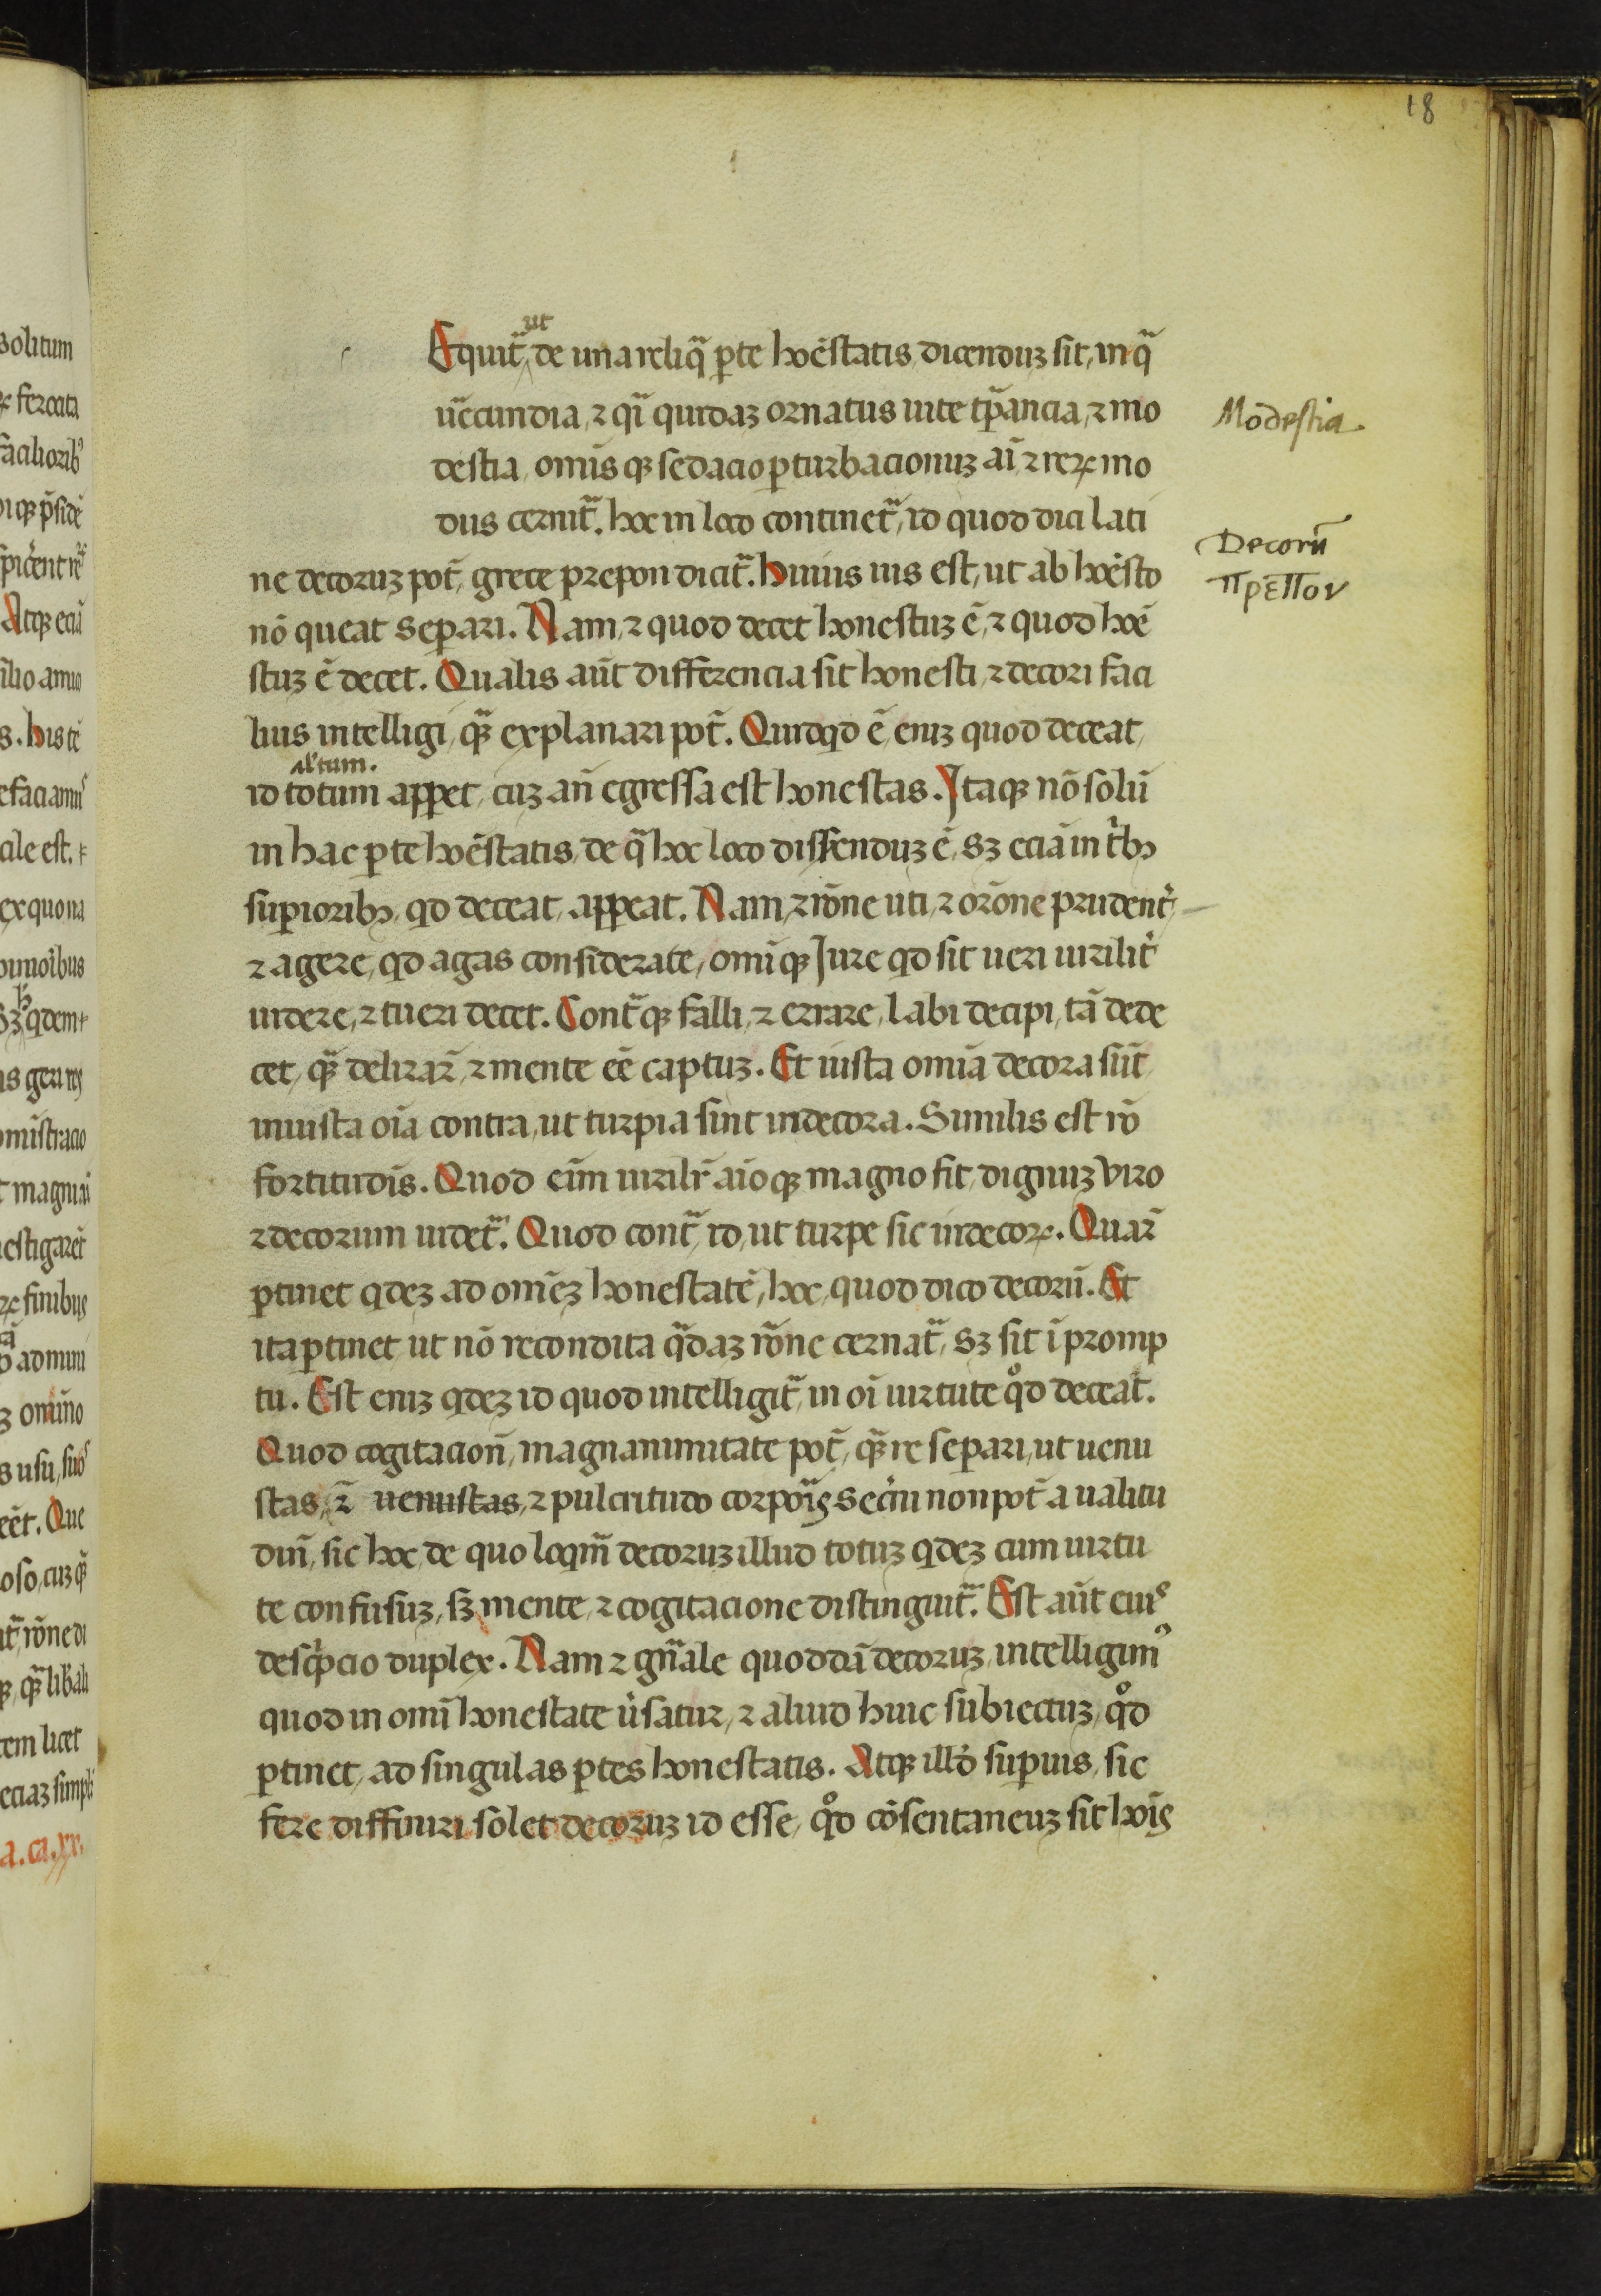 18
ut
Equit᷒ de una reliq̄ ꝑte hoēstatis dicenduꝫ sit, in q̄
ūecundia, ⁊ qī quidaꝫ ornatus uite tꝑancia, ⁊ mo
destia, om̄is qꝫ sedacio ꝑturbacionuꝫ aī, ⁊ reꝝ mo
dus cernit᷒. hoc in loco continet᷒, id quod dici lati
ne decoruꝫ pot̄, grece prepon dicit᷒. Huius uis est, ut ab hoēsto
nō queat seꝑari. Nam, ⁊ quod decet honestuꝫ ē, ⁊ quod hoē
stuꝫ ē decet. Qualis aūt differencia sit honesti, ⁊ decori faci
lius intelligi, qꝫ̄ explanari pot̄. Quidqd ē, eniꝫ quod deceat,
al' tum.
id totum appet, cuꝫ an̄ egressa est honestas. Itaqꝫ nō solū
in hac ꝑte hoēstatis, de q̄ hoc loco disserenduꝫ ē, sꝫ eciā in tⁱbꝫ
suꝑioribꝫ, qd deceat, appeat. Nam, ⁊ rōne uti, ⁊ orōne prudent᷒,
⁊ agere, qd agas considerate, om̄i qꝫ Jure qd sit ueri uirilit᷒
uidere, ⁊ tueri decet. Cont̄qꝫ falli, ⁊ errare, labi decipi, tā dede
cet, qꝫ̄ delirar̄, ⁊ mente eē captuꝫ. Et iusta omīa decora sūt,
iniusta oīa contra, ut turpia sint indecora. Similis est rō
fortitudīs. Quod eīm uirilr̄ aīoqꝫ magno fit, dignuꝫ viro
⁊ decorum uidet᷒. Quod cont̄, id, ut turpe sic indecoꝝ. Quar̄
ꝑtinet qdeꝫ ad om̄eꝫ honestatē, hoc, quod dico decorū. Et
ita ꝑtinet, ut nō recondita q̄daꝫ rōne cernat᷒, sꝫ sit ī promp
tu. Est eniꝫ qdeꝫ id quod intelligit᷒, in oī uirtute qͦd deceat.
Quod cogitacion̄, magnanimitate pot̄, qꝫ̄ re seꝑari, ut uenu
stas, ⁊̄ uenustas, ⁊ pulcritudo corpoīs secⁱni non pot̄ a ualitu
din̄, sic hoc, de quo loqm̄ decoruꝫ illud totuꝫ qdeꝫ cum uirtu
te confusuꝫ, sꝫ mente, ⁊ cogitacione distinguit᷒. Est aūt eiuꝰ
descⁱpcio duplex. Nam ⁊ gn̄ale quoddā decoruꝫ, intelligimꝰ
quod in om̄i honestate ūsatur, ⁊ aliud huic subiectuꝫ, qͦd
ꝑtinet, ad singulas ꝑtes honestatis. Atqꝫ illō suꝑius, sic
fere diffiniri solet decoruꝫ id esse, qͦd cōsentaneuꝫ sit hoīs
Modestia
Decorū
πρεπον